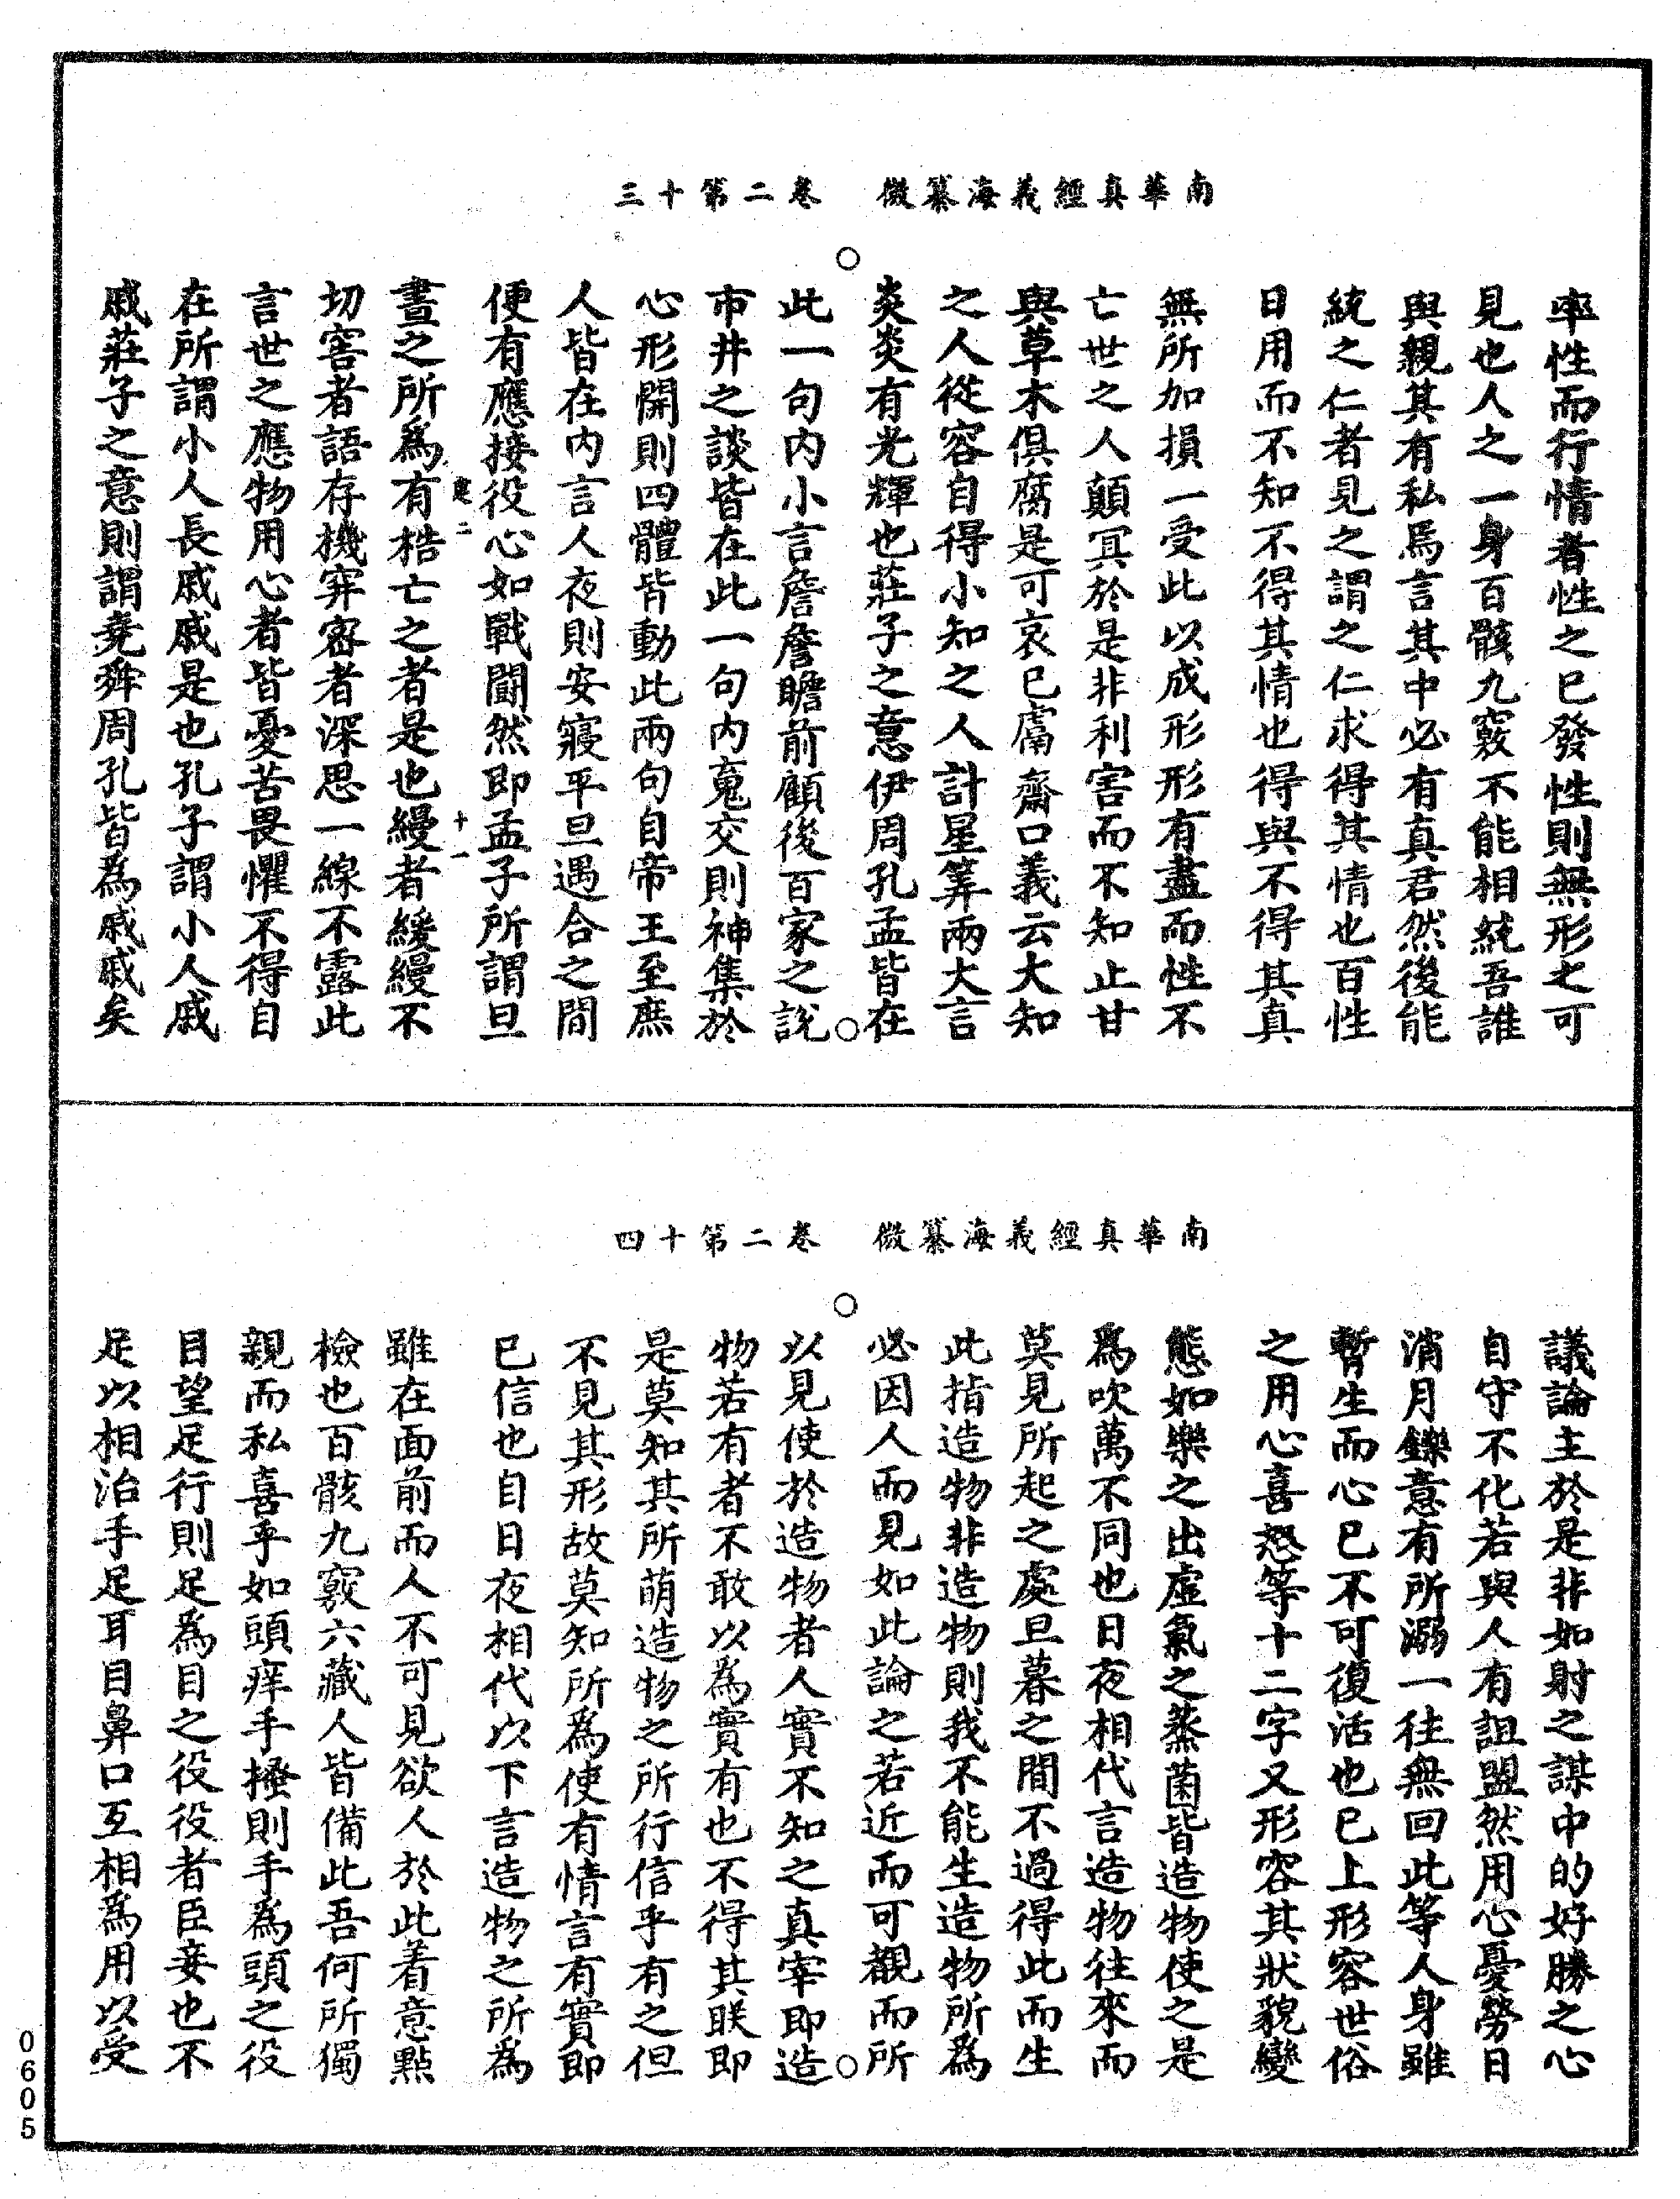 南華真經義海纂微　卷二第十三
率性而行情者性之已發性則無形之可
見也人之一身百骸九竅不能相統吾誰
與親其有私焉言其中必有真君然後能
統之仁者見之謂之仁求得其情也百性
日用而不知不得其情也得與不得其真
無所加損一受此以成形形有盡而性不
亡世之人顛冥於是非利害而不知止甘
與草木俱腐是可哀已鬳齋口義云大知
之人從容自得小知之人計星筭兩大言
炎炎有光輝也莊子之意伊周孔孟皆在
此一句內小言詹詹瞻前顧後百家之說
市井之談皆在此一句內䰟交則神集於
心形開則四體皆動此兩句自帝王至庶
人皆在內言人夜則安寢平旦遇合之間
便有應接役心如戰鬭然即孟子所謂旦
晝之所爲有梏亡之者是也縵者緩縵不
切窖者語存機穽密者深思一線不露此
言世之應物用心者皆憂苦畏懼不得自
在所謂小人長戚戚是也孔子謂小人戚
戚莊子之意則謂堯舜周孔皆爲戚戚矣
南華真經義海纂微　卷二第十四
議論主於是非如射之謀中的好勝之心
自守不化若與人有詛盟然用心憂勞日
消月鑠意有所溺一往無回此等人身雖
暫生而心已不可復活也已上形容世俗
之用心喜怒等十二字又形容其狀貌變
態如樂之出虛氣之蒸菌皆造物使之是
爲吹萬不同也日夜相代言造物往來而
莫見所起之處旦暮之間不過得此而生
此指造物非造物則我不能生造物所爲
必因人而見如此論之若近而可觀而所
以見使於造物者人實不知之真宰即造
物若有者不敢以爲實有也不得其眹即
是莫知其所萌造物之所行信乎有之但
不見其形故莫知所爲使有情言有實即
已信也自日夜相代以下言造物之所爲
雖在面前而人不可見欲人於此着意點
檢也百骸九竅六藏人皆備此吾何所獨
親而私喜乎如頭痒手搔則手爲頭之役
目望足行則足爲目之役役者臣妾也不
足以相治手足耳目鼻口互相爲用以受
0605